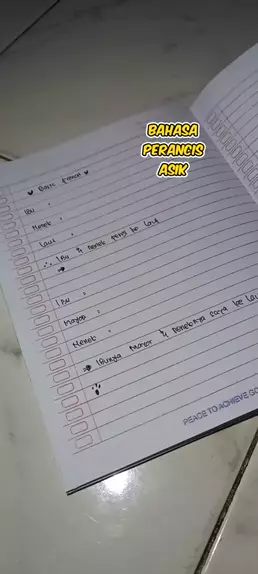 BAHASA
PERANCIS
ASIK
♥ Basic France ♥
Ibu :
Nenek :
Laut :
∴ Ibu & nenek pergi ke laut
→
Ibu :
Mayor :
Nenek :
→ Ibunya mayor & neneknya saya ke lau
PEACE TO ACHIEVE GO